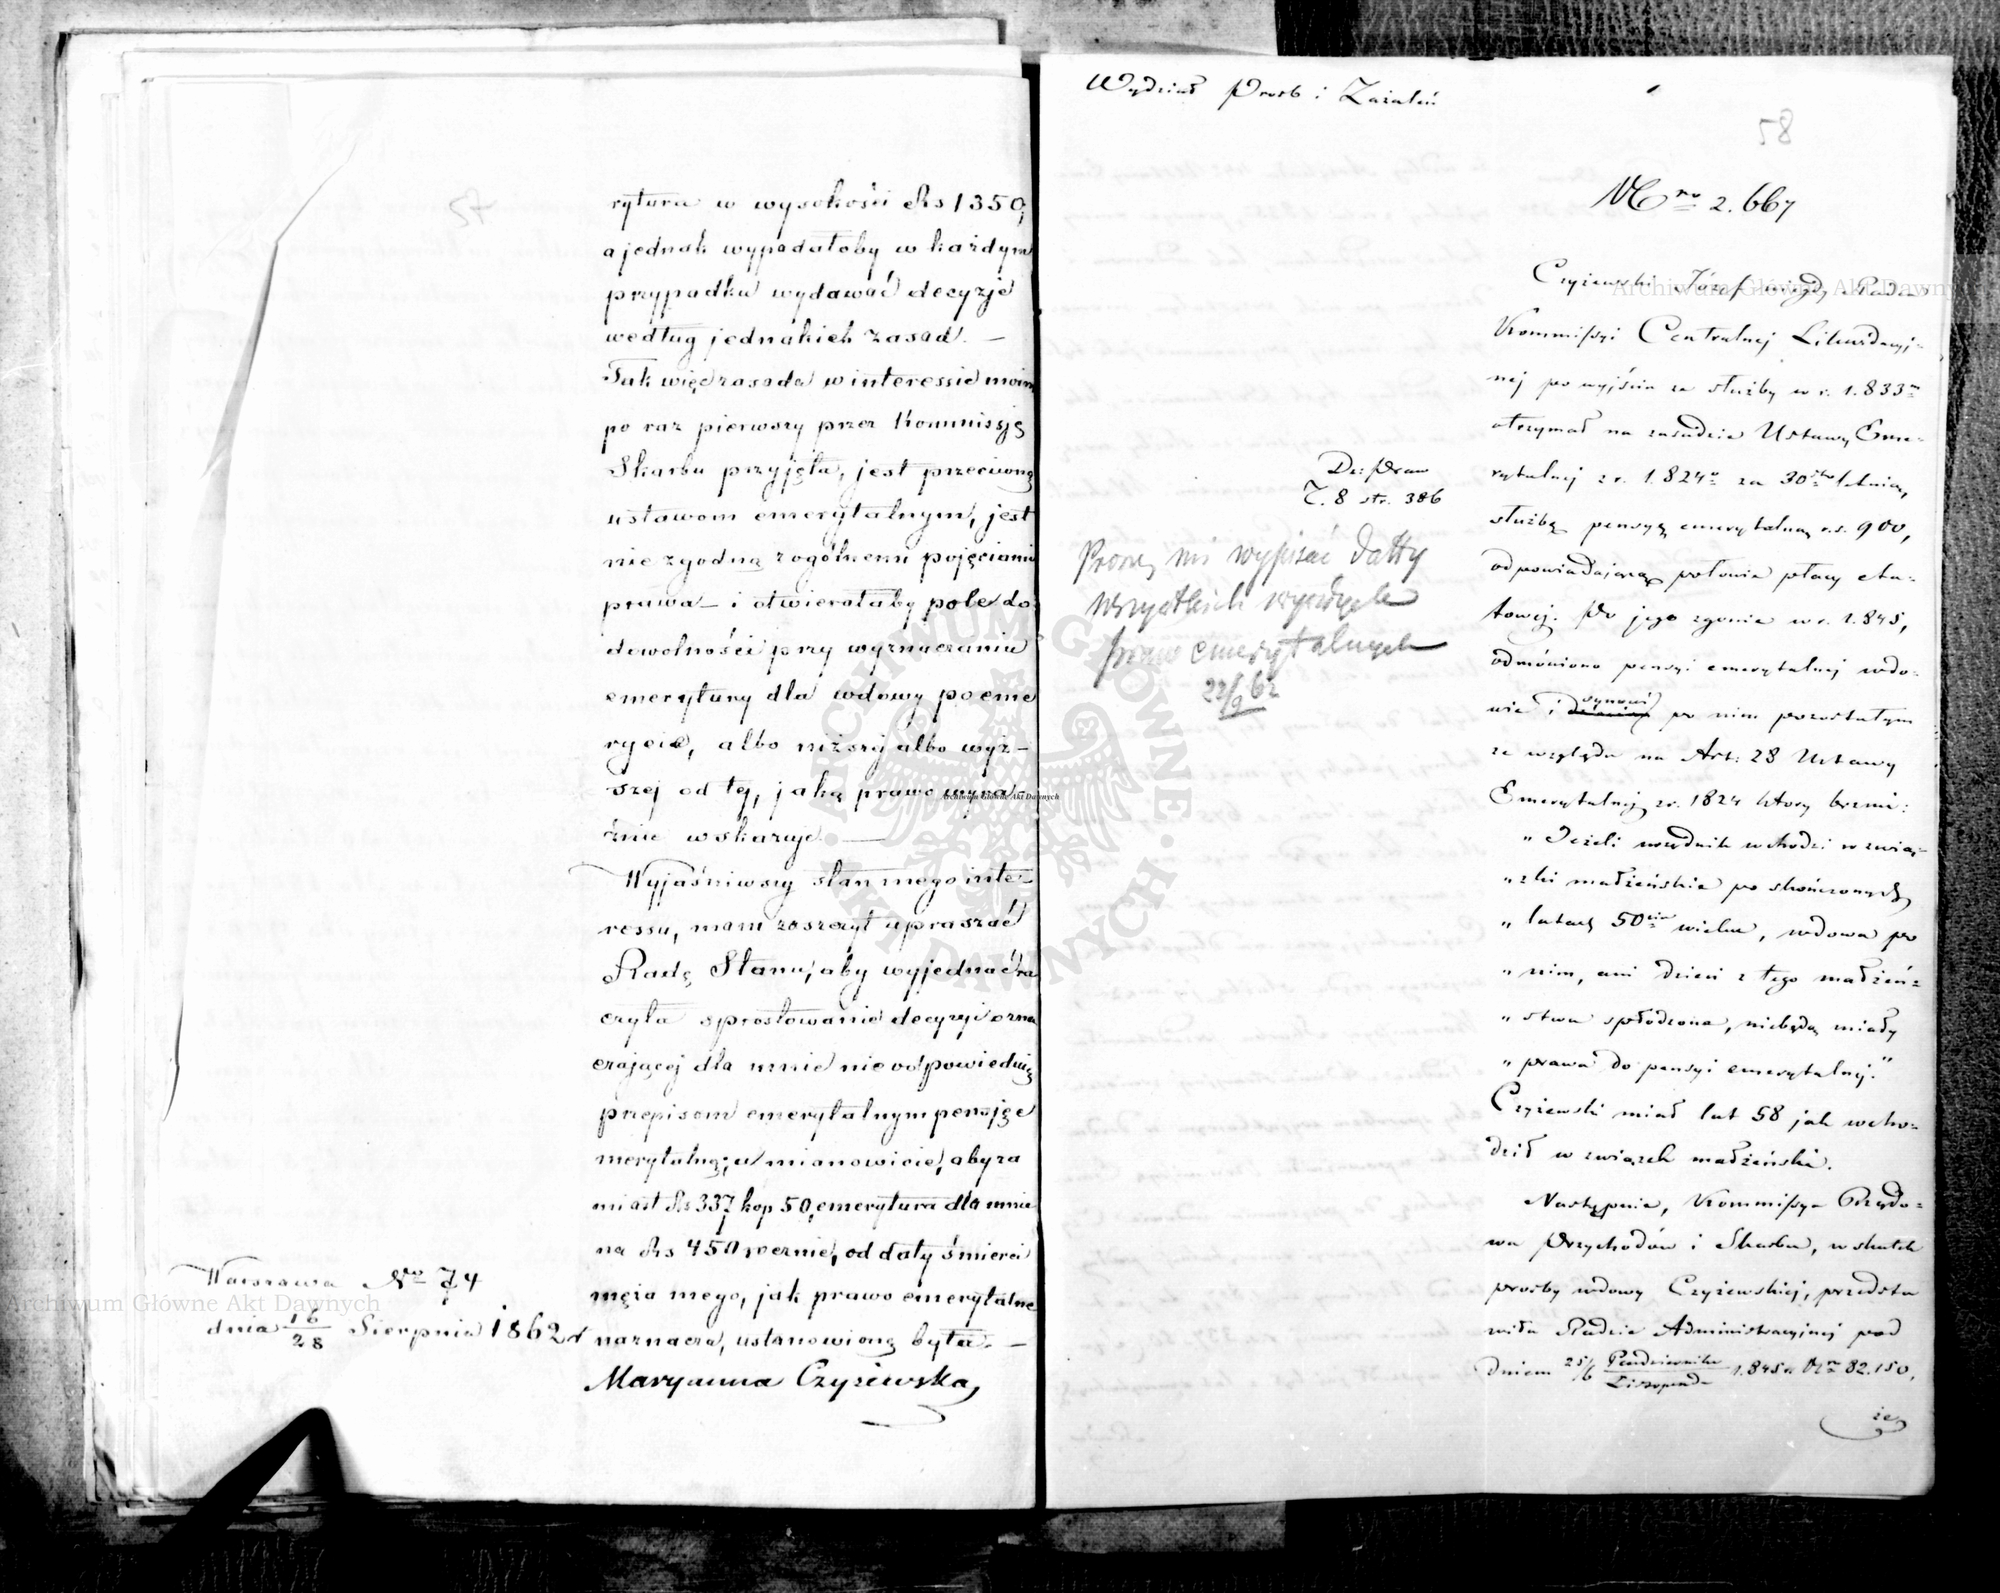 57
rytura w wysokości Rs 1350,
a jednak wypadałoby w każdym
przypadku wydawać decyzje
według jednakich zasad. —
Tak więc zasada w interessie moim
po raz pierwszy przez Kommissję
Skarbu przyjęta, jest przeciwną
ustawom emerytalnym, jest
nie zgodną z ogólnemi pojęciami
prawa — i otwierałaby pole do
dowolności przy wyznaczaniu
emerytury dla wdowy po eme
rycie, albo niższej albo wyż-
szej od tej, jaką prawo wyra-
źnie wskazuje. —
Wyjaśniwszy stan mego inte-
ressu, mam zaszczyt upraszać
Radę Stanu, aby wyjednać ra
czyła sprostowanie decyzyi ozna
czającej dla mnie nie odpowiednią
przepisom emerytalnym pensję e
merytalną; a mianowicie, aby za
miast Rs 337 kop 50, emerytura dla mnie
na Rs 450 rocznie, od daty śmierci
męża mego, jak prawo emerytalne
naznacza, ustanowioną była. —
Maryanna Czyżewska,
Warszawa No 74
dnia 16/28 Sierpnia 1862 r
Wydział Prośb i Zażaleń
58
Nro 2.667
Dz: Praw
T. 8 str. 386
Proszę mi wypisać datty
wszystkich
praw emerytalnych
22/9 62
Czyżewski Józef niegdy Radca
Kommissyi Centralnej Likwidacyj-
nej po wyjściu ze służby w r. 1.833m
otrzymał na zasadzie Ustawy Eme-
rytalnej z r. 1.824o za 30sto letnią,
służbę pensyę emerytalną r.s. 900,
odpowiadającą połowie płacy eta-
towej. Po jego zgonie w r. 1.845,
odmówiono pensyi emerytalnej wdo-
wie i synowi po nim pozostałym
ze względu na Art: 28 Ustawy
Emerytalnej z r. 1824 który brzmi:
„Jeżeli urzędnik wchodzi w zwią-
„zki małżeńskie po skończonych
„latach 50ciu wieku, wdowa po
„nim, ani dzieci z tego małżeń-
„stwa spłodzone, niebędą miały
„prawa do pensyi emerytalnej."
Czyżewski miał lat 58 jak wcho-
dził w związek małżeński.
Następnie, Kommissya Rządo-
wa Przychodów i Skarbu, w skutek
prośby wdowy Czyżewskiej, przedsta
wiła Radzie Administracyjnej pod
dniem 25/6 Października/Listopada 1.845 r. Nro 82.150,
że
Archiwum Główne Akt Dawnych
Archiwum Główne Akt Dawnych
Archiwum Główne Akt Dawnych
ARCHIWUM GŁÓWNE AKT DAWNYCH